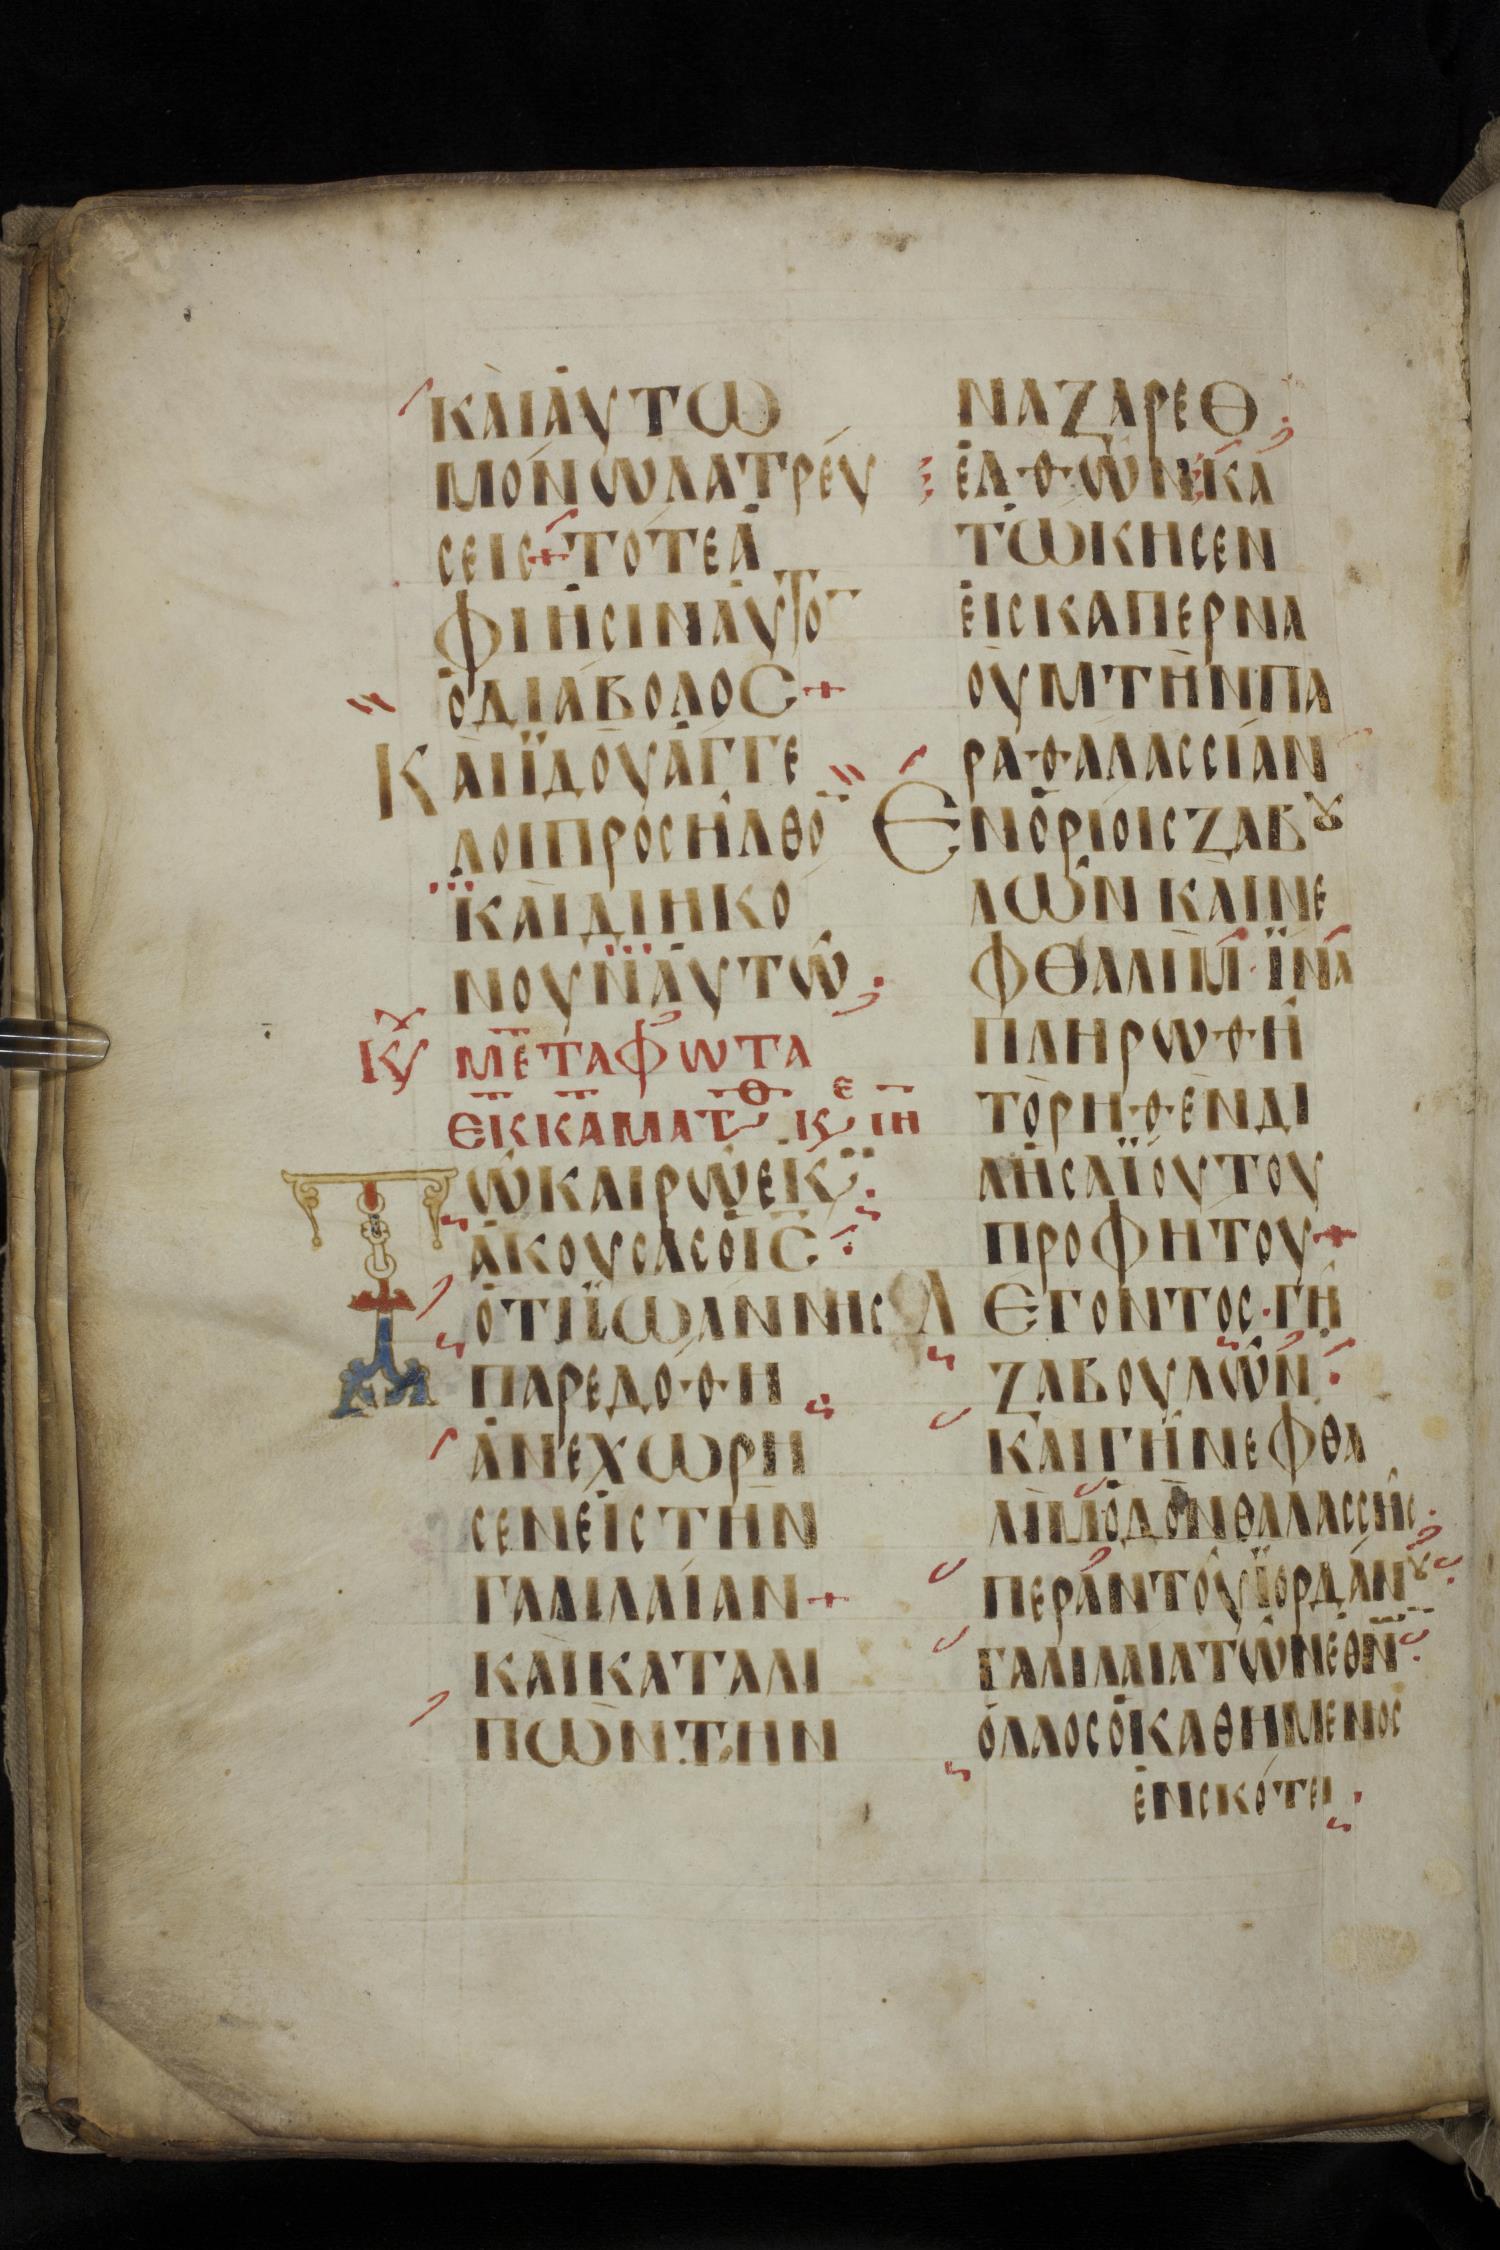 ΚΑΙΑΥΤΩ
ΜΟΝΩΛΑΤΡΕΥ
ΣΕΙΣ+ΤΟΤΕΑ
ΦΙΗΣΙΝΑΥΤΟ
ΟΔΙΑΒΟΛΟΣ+
ΚΑΙΪΔΟΥΑΓΓΕ
ΛΟΙΠΡΟΣΗΛΘΟ
ΚΑΙΔΙΗΚΟ
ΝΟΥΝΑΥΤΩ
ΚΥ ΜΕΤΑΦΩΤΑ
ΕΚΚΑΜΑΤΘ ΚΕ ΙΗ
ΤΩΚΑΙΡΩΕΚ
ΑΚΟΥΣΑΣΟΙΣ
ΟΤΙΪΩΑΝΝΗΣ
ΠΑΡΕΔΟΘΗ
ΑΝΕΧΩΡΗ
ΣΕΝΕΙΣΤΗΝ
ΓΑΛΙΛΑΙΑΝ+
ΚΑΙΚΑΤΑΛΙ
ΠΩΝΤΗΝ
ΝΑΖΑΡΕΘ
ΕΛΘΩΝΚΑ
ΤΩΚΗΣΕΝ
ΕΙΣΚΑΠΕΡΝΑ
ΟΥΜΤΗΝΠΑ
ΡΑΘΑΛΑΣΣΙΑΝ
ΕΝΟΡΙΟΙΣΖΑΒȢ
ΛΩΝΚΑΙΝΕ
ΦΘΑΛΙΜ·ΪΝΑ
ΠΛΗΡΩΘΗ
ΤΟΡΗΘΕΝΔΙ
ΑΗΣΑΪΟΥΤΟΥ
ΠΡΟΦΗΤΟΥ+
ΛΕΓΟΝΤΟΣ·ΓΗ
ΖΑΒΟΥΛΩΝ
ΚΑΙΓΗΝΕΦΘΑ
ΛΙΜΟΔΟΝΘΑΛΑΣΣΗΣ
ΠΕΡΑΝΤΟΥΪΟΡΔΑΝȢ
ΓΑΛΙΛΑΙΑΤΩΝΕΘΝ
ΟΛΑΟΣΟΚΑΘΗΜΕΝΟΣ
ΕΝΣΚΟΤΕΙ